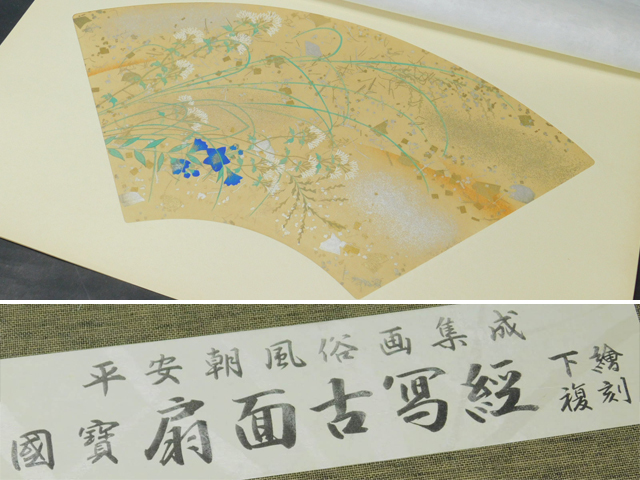 平安朝風俗画集成
國寶扇面古写經
下繪
複刻